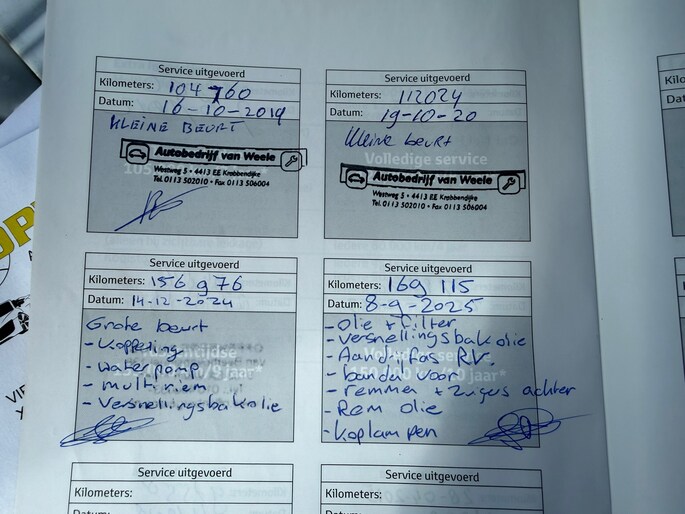 Service uitgevoerd
Kilometers: 104 760
Datum: 16-10-2019
KLEINE BEURT
Autobedrijf van Weele
Westweg 5 • 4413 EE Krabbendijke
Tel. 0113 502010 • Fax 0113 506004
Service uitgevoerd
Kilometers: 112024
Datum: 19-10-20
Kleine beurt
Volledige service
Autobedrijf van Weele
Westweg 5 • 4413 EE Krabbendijke
Tel. 0113 502010 • Fax 0113 506004
Service uitgevoerd
Kilometers: 156 976
Datum: 14-12-2024
Grote beurt
- Koppeling
- waterpomp
- multiriem
- Versnellingsbakolie
Service uitgevoerd
Kilometers: 169 115
Datum: 8-9-2025
- Olie + filter
- versnellingsbakolie
- Aandrijfas R.V.
- banden voor
- remmen + zuigers achter
- Rem olie
- Koplampen
Service uitgevoerd
Kilometers:
Service uitgevoerd
Kilometers:
Datum: